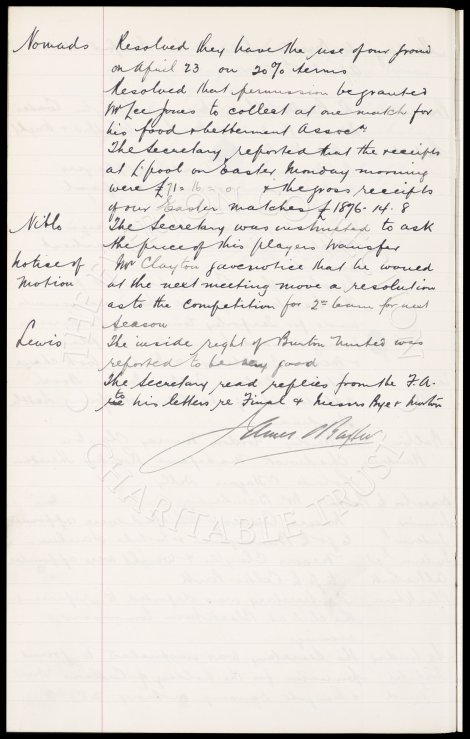 Nomads Resolved they have the use of our ground
on April 23 on 20% terms
Resolved that permission be granted
Mr Lee Jones to collect at one match for
his food & betterment Assocn
The Secretary reported that the receipts
at L'pool on Easter Monday morning
were £71=16= & the gross receipts
of our Easter matches £1876-14-8
Niblo The Secretary was instructed to ask
the price of this players transfer
Notice of Mr Clayton gave notice that he would
Motion at the next meeting move a resolution
as to the competition for 2nd team for next
Season
Lewis The inside right of Burton United was
reported to be very good
The Secretary read replies from the F.A.
to his letters re Final & Messrs Bye & Murton
James Baxter
CHARITABLE TRUST